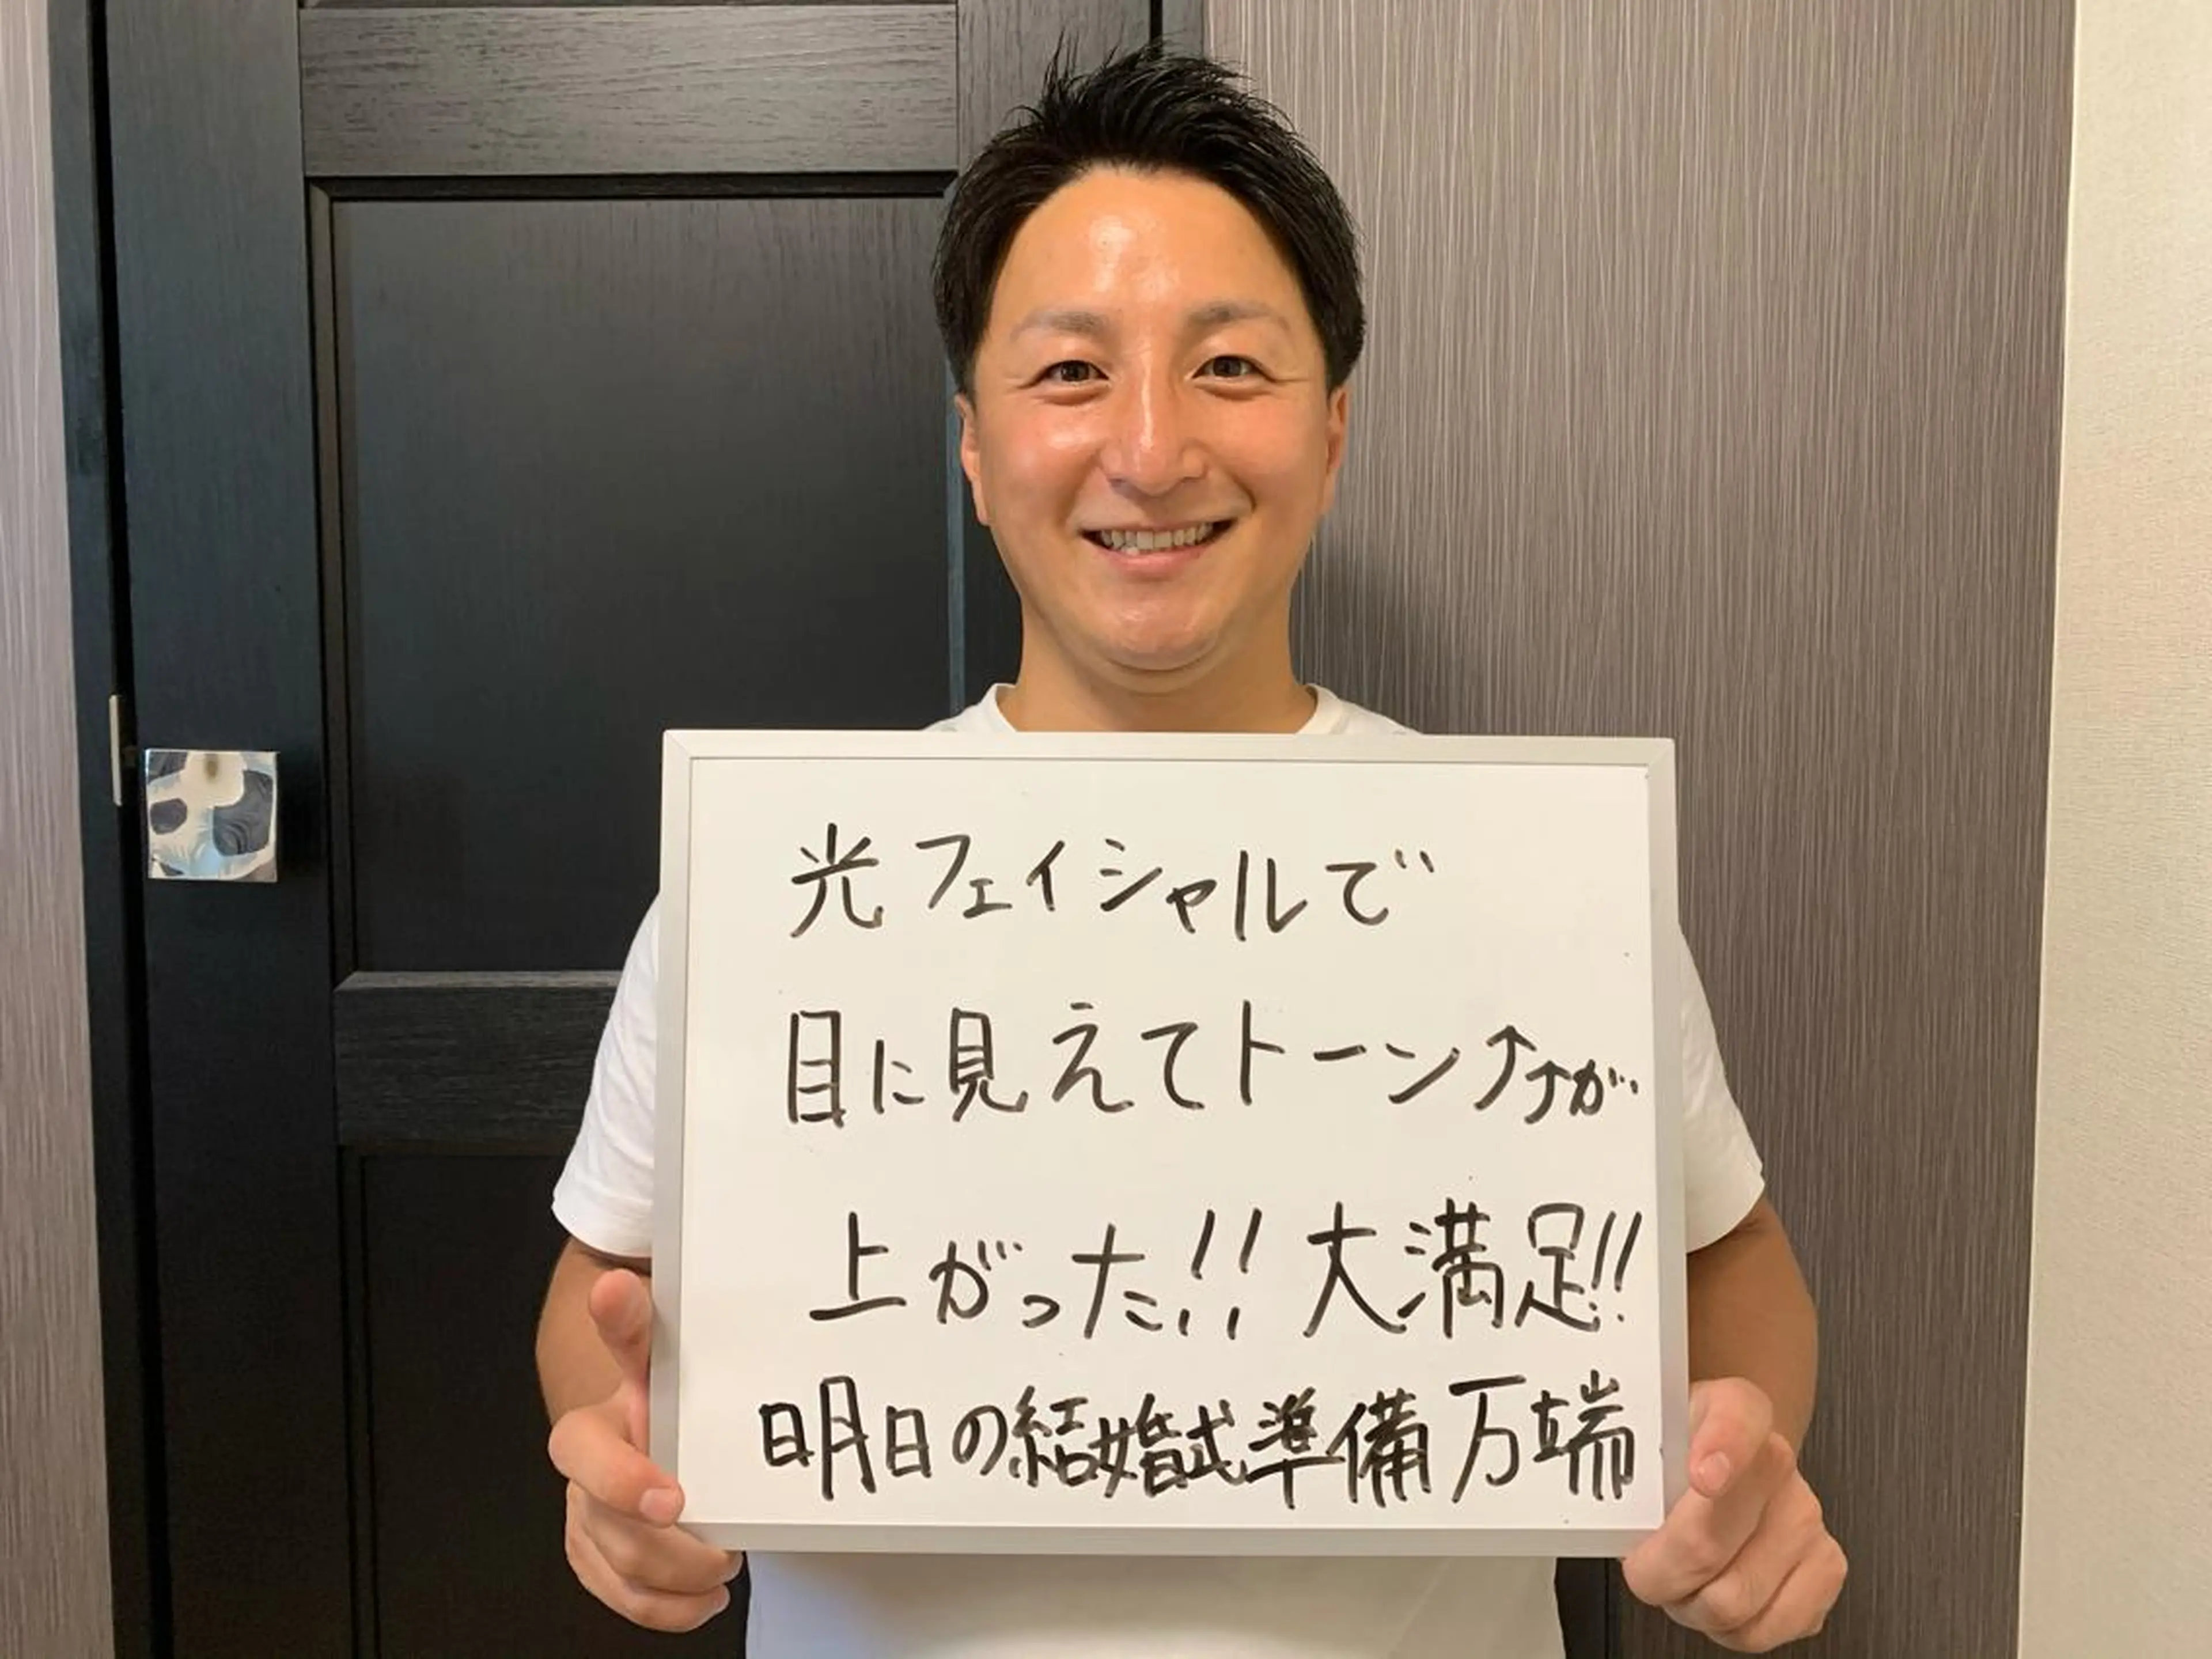 光フェイシャルで
目に見えてトーン↑↑が
上がった!!大満足!!
明日の結婚式準備万端